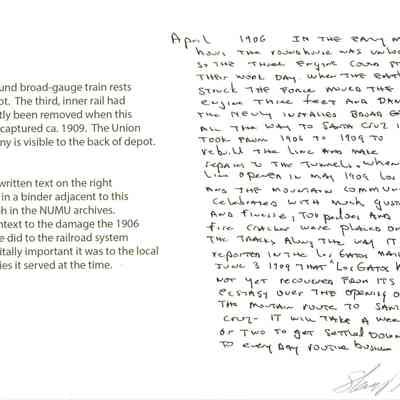 und broad-gauge train rests
ot. The third, inner rail had
tly been removed when this
captured ca. 1909. The Union
ny is visible to the back of depot.
written text on the right
in a binder adjacent to this
h in the NUMU archives.
ntext to the damage the 1906
e did to the railroad system
itally important it was to the local
ies it served at the time.
April 1906 IN THE EARLY M
hours the roundhouse was unloc
so the three engine could st
their work day. When the eart
struck the force moved the
engine three feet and dam
the newly installed broad g
all the way to Santa Cruz i
took from 1906 to 1909 to
rebuild the line and make
repairs to the tunnels. When
line opened in may 1909 Los
and the mountain commun
celebrated with much gusto
and finesse, torpedoes and
fire cracker were placed on
the tracks along the way it
reported in the Los Gatos Mail
June 3 1909 that "Los Gatos h
not yet recovered from its
ecstasy over the opening o
the moutain route to San
Cruz- it will take a wee
or two to get settled down
to every day routine busin